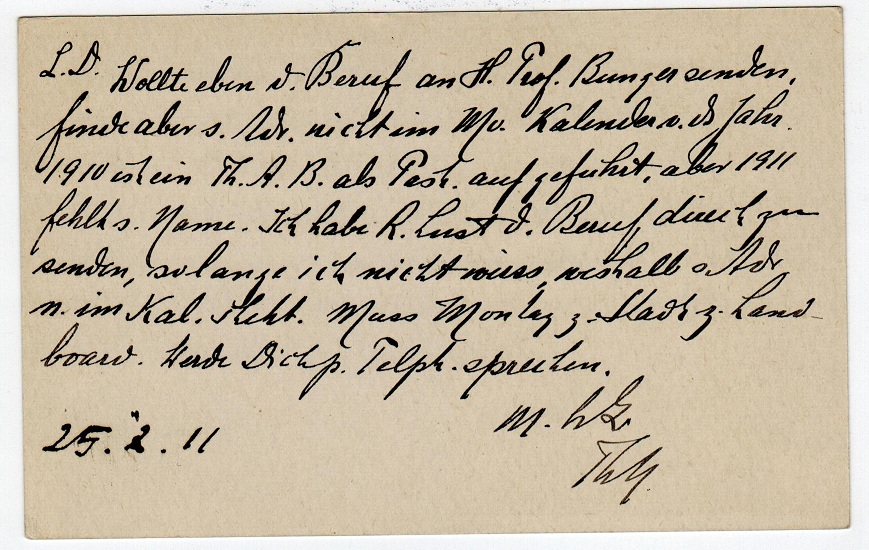 L.D. Wollte eben d. Beruf an H. Prof. Bunger senden,
finde aber s. Adr. nicht im Mo. Kalender v. ds Jahr.
1910 ist ein Th. A. B. als Past. aufgeführt, aber 1911
fehlt s. Name. Ich habe k. Lust d. Beruf direct zu
senden, solange ich nicht weiss, weshalb s Adr
n. im Kal. steht. Muss Montag z. Stadt z. Land-
board. Werde Dich p. Telph. sprechen.
M. h G.
25. 2. 11